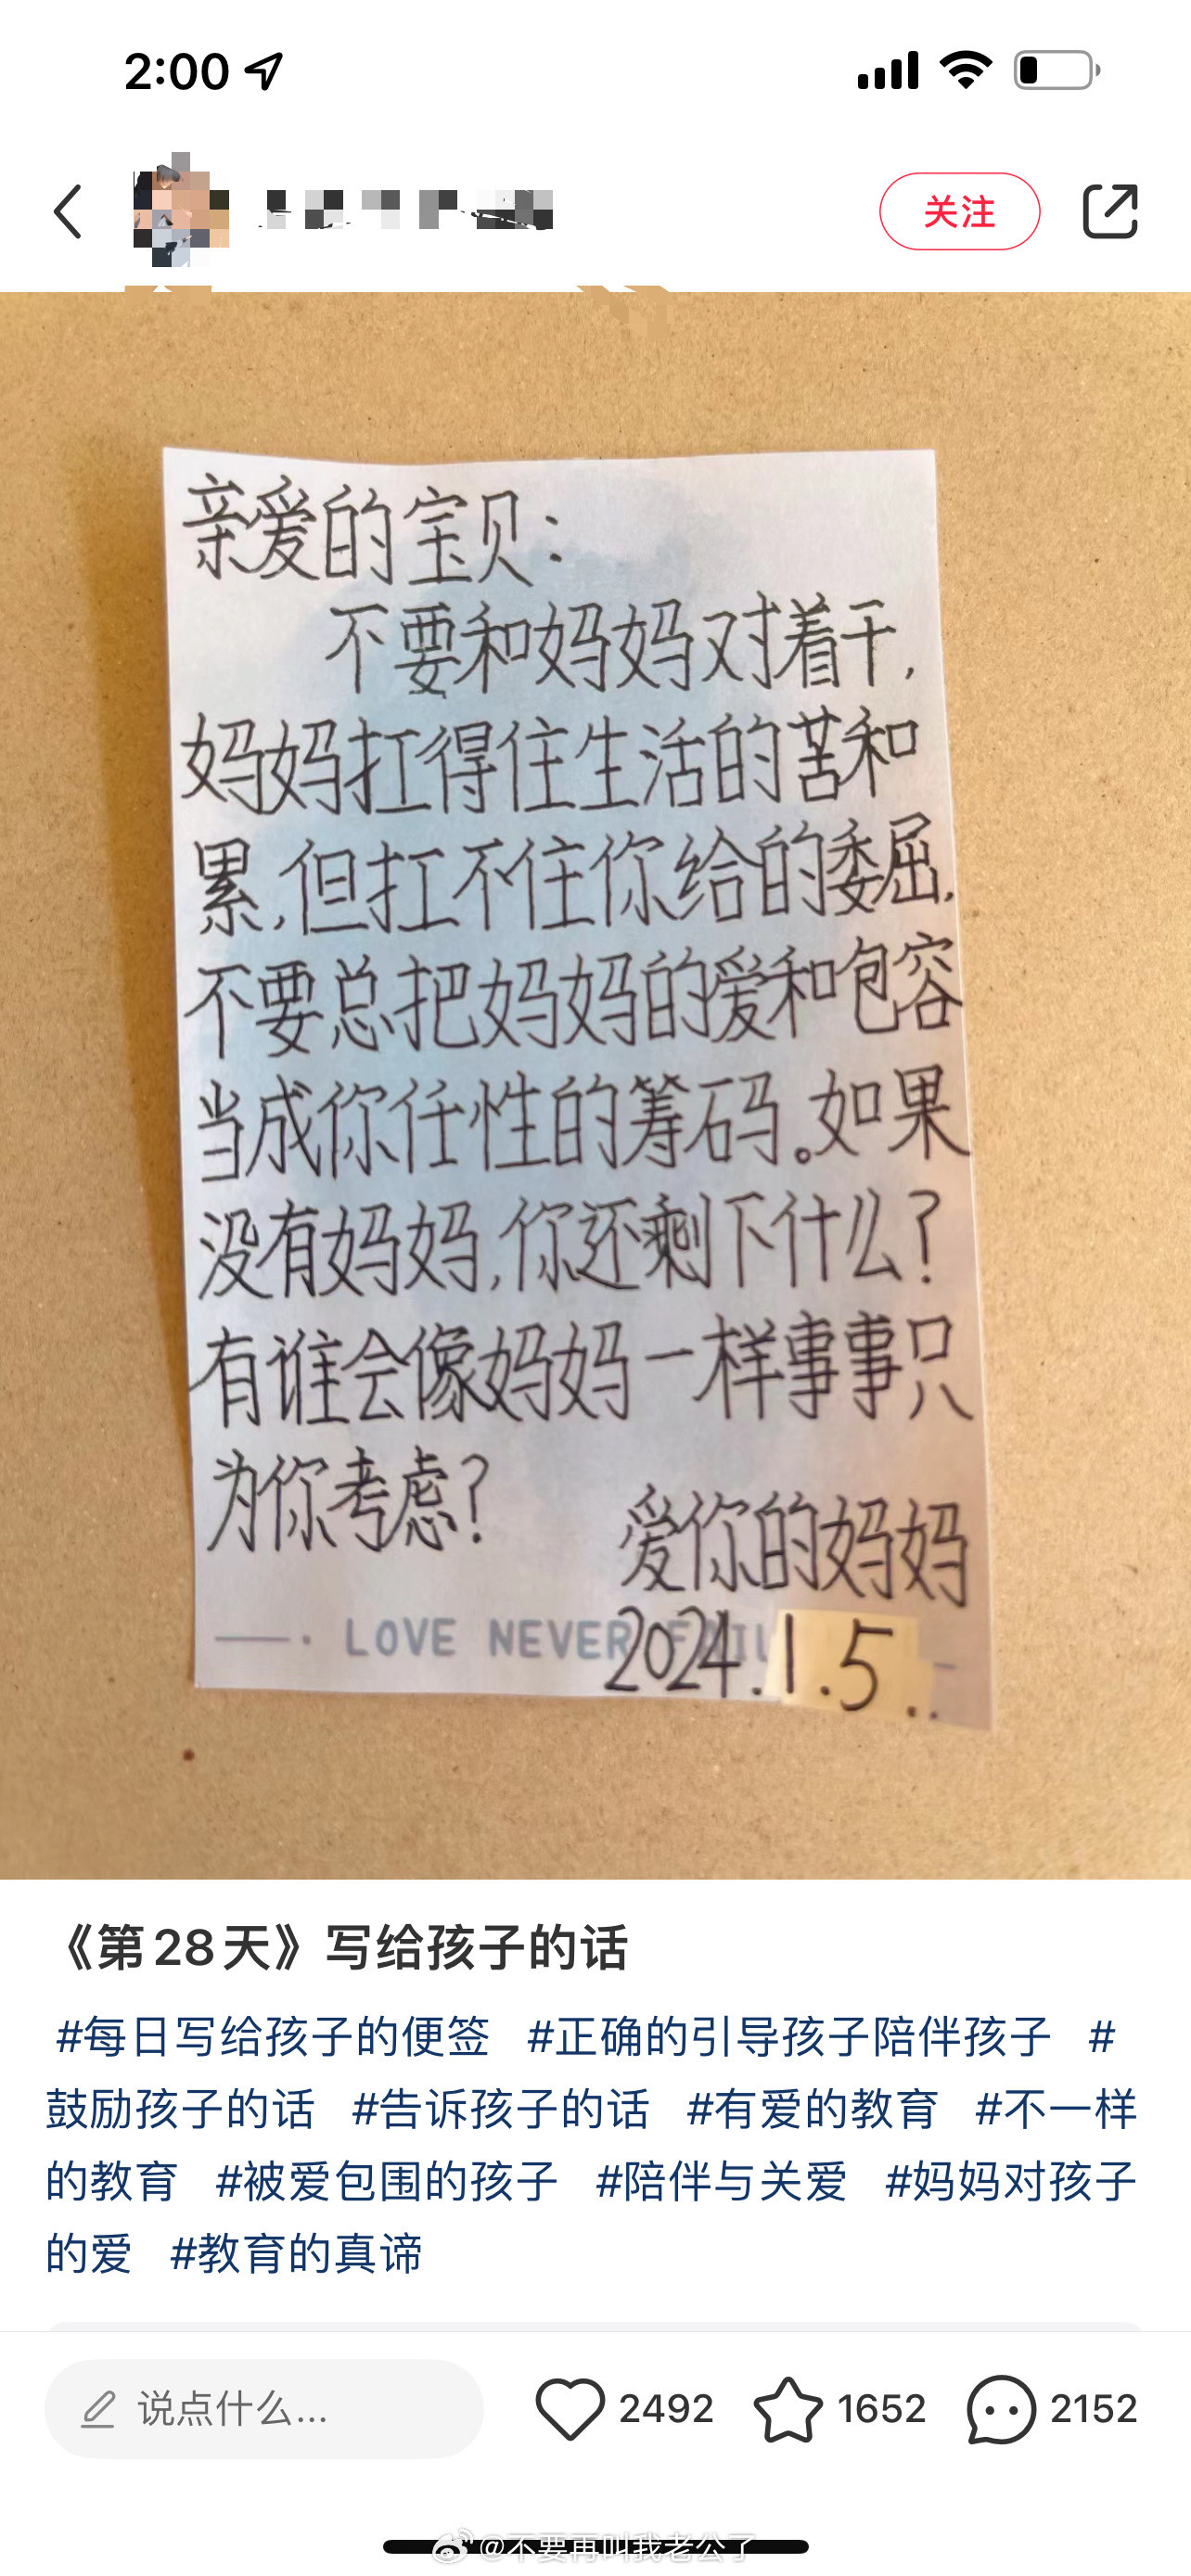 2:00
关注
亲爱的宝贝：
不要和妈妈对着干，
妈妈扛得住生活的苦和
累，但扛不住你给的委屈，
不要总把妈妈的爱和包容
当成你任性的筹码。如果
没有妈妈，你还剩下什么？
有谁会像妈妈一样事事只
为你考虑？
爱你的妈妈
LOVE NEVER FAIL
2024.1.5..
《第28天》写给孩子的话
#每日写给孩子的便签 #正确的引导孩子陪伴孩子 #
鼓励孩子的话 #告诉孩子的话 #有爱的教育 #不一样
的教育 #被爱包围的孩子 #陪伴与关爱 #妈妈对孩子
的爱 #教育的真谛
说点什么... 2492 1652 2152
@不要再叫我老公了